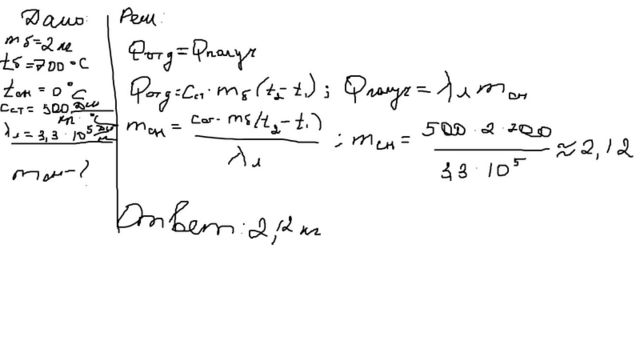 Дано:
mб=2 кг
tб=700°C
tсн=0°C
Cст=500 Дж/кг·°C
λл=3,3·10⁵ Дж/кг
mсн-?
Реш:
Qотд=Qполуч
Qотд=Cст·mб(t₂-t₁); Qполуч=λл mсн
mсн = Cст·mб(t₂-t₁)/λл ; mсн = 500·2·700/3,3·10⁵ ≈2,12
Ответ: 2,12 кг